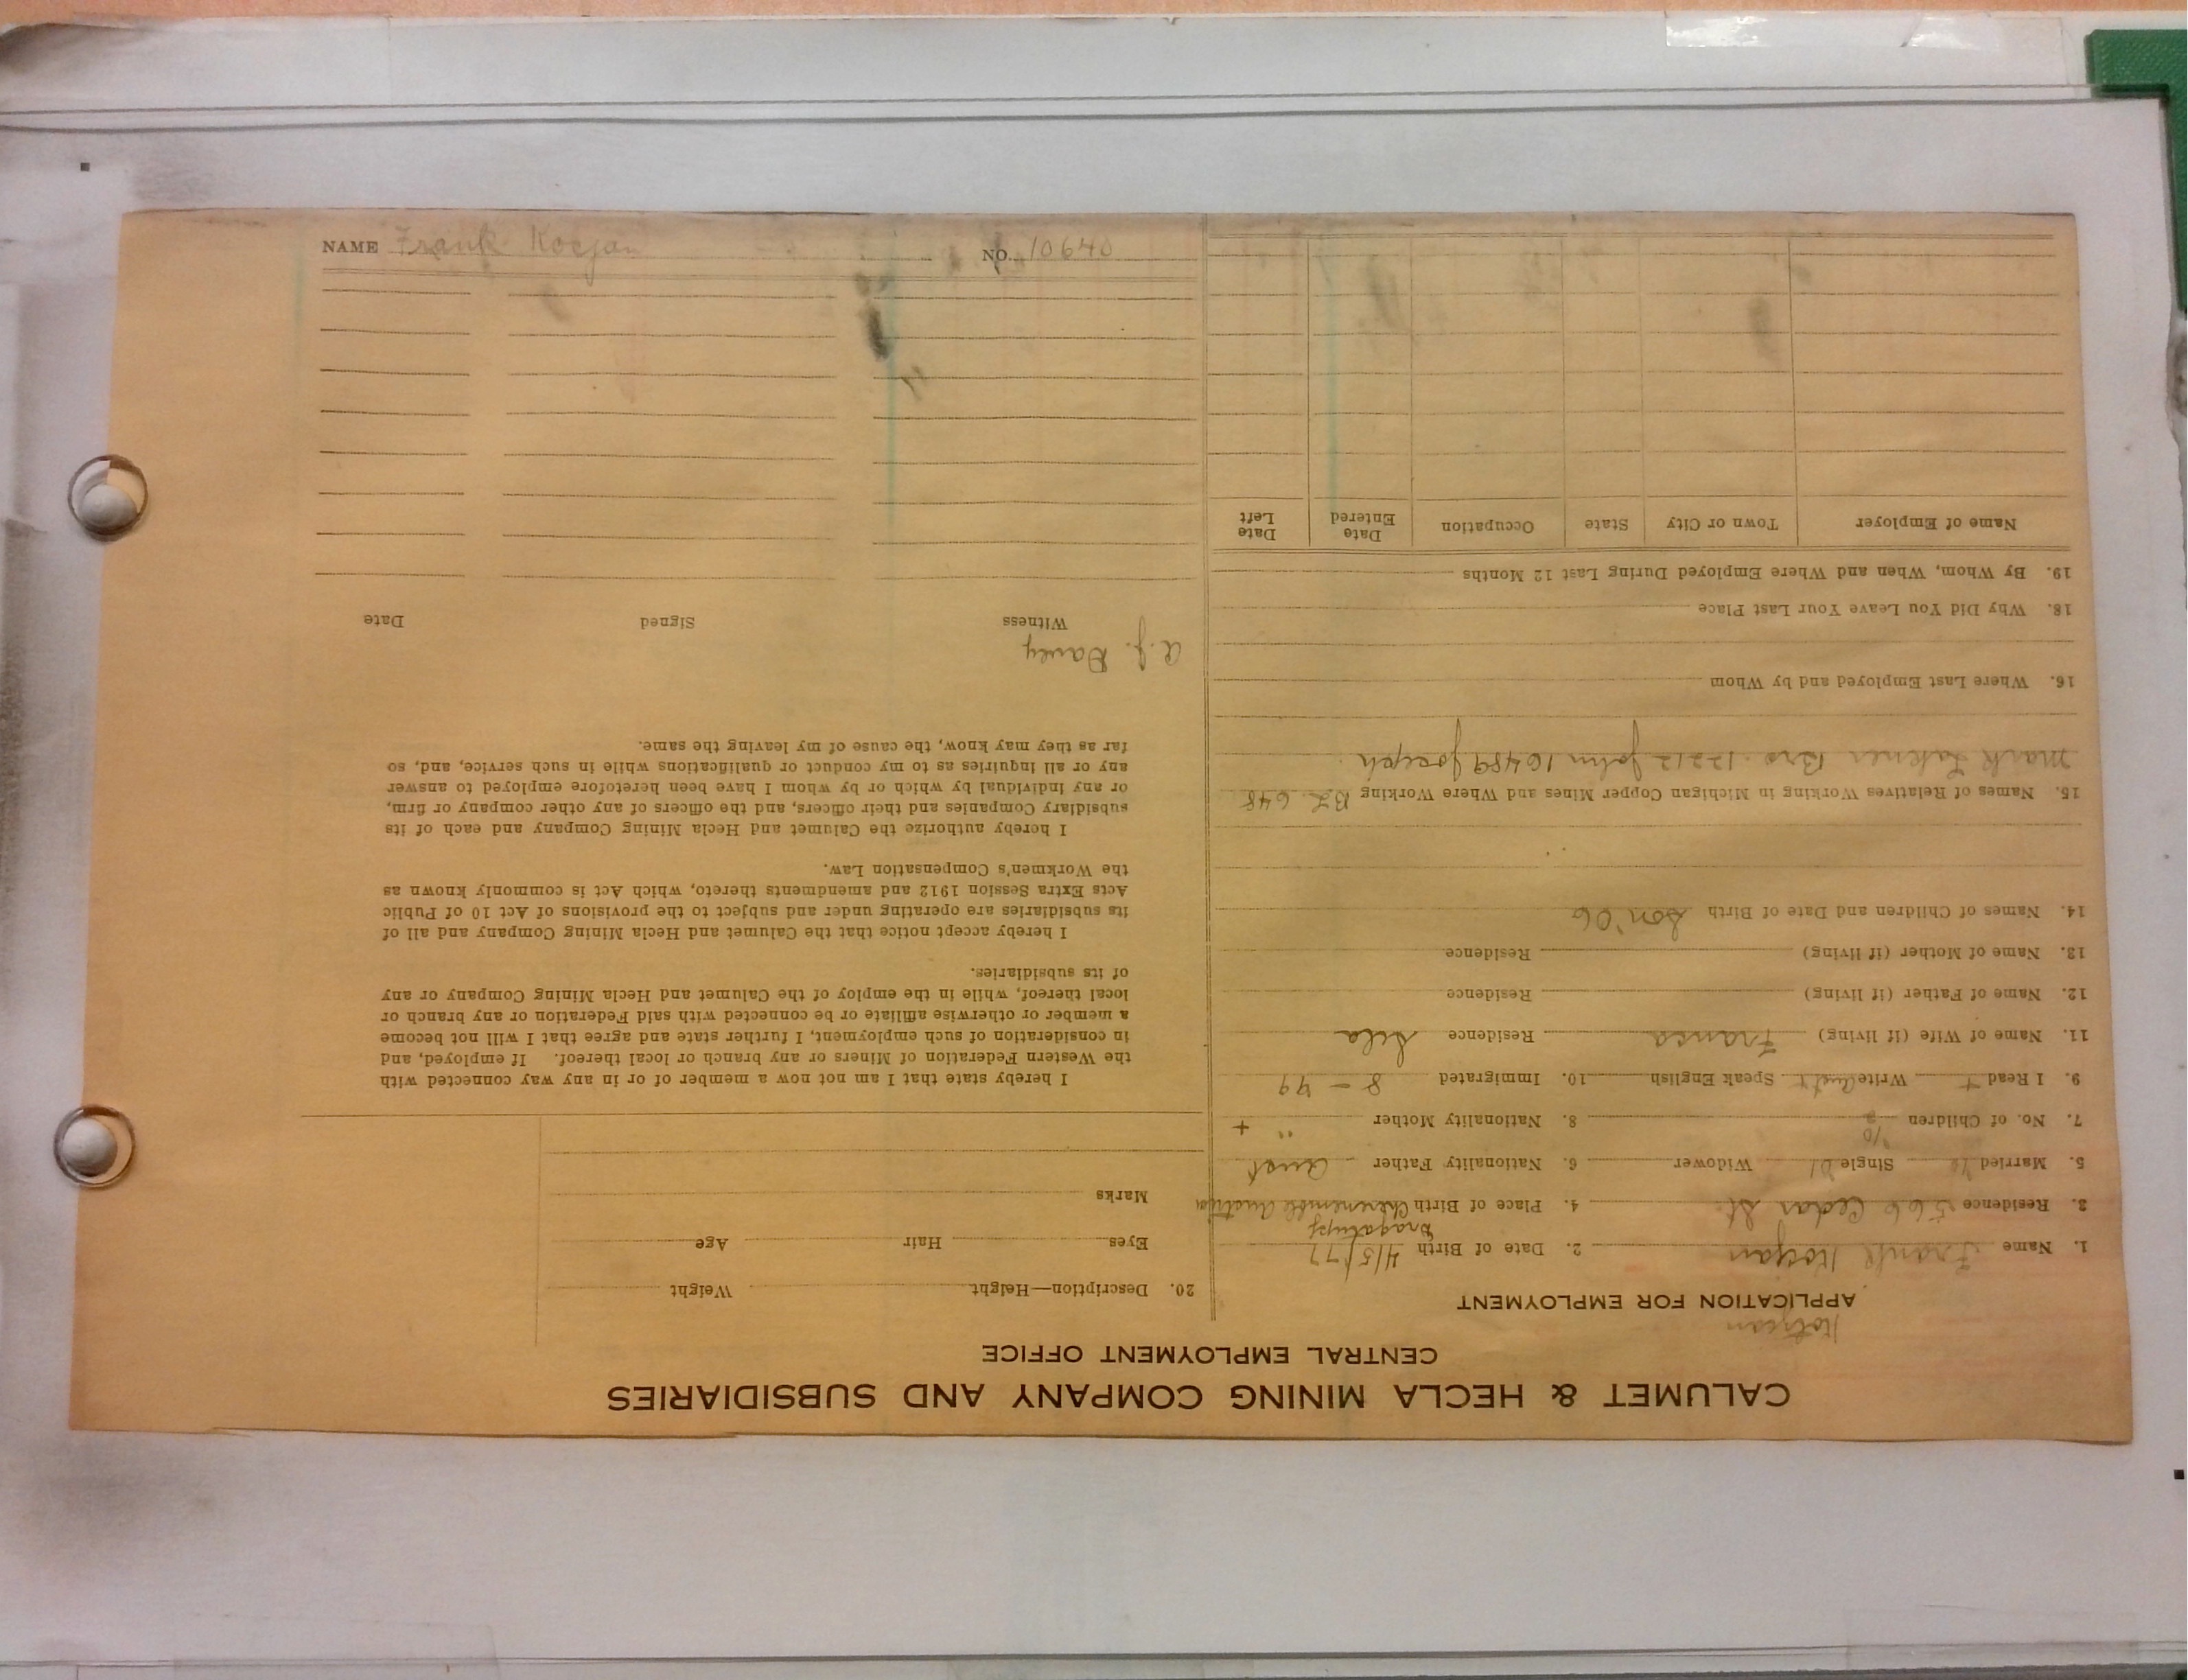 CALUMET & HECLA MINING COMPANY AND SUBSIDIARIES
CENTRAL EMPLOYMENT OFFICE
APPLICATION FOR EMPLOYMENT
1. Name Frank Kocjan 2. Date of Birth 4/5/77
3. Residence 566 Cedar St. 4. Place of Birth Austria
5. Married Single Widower 6. Nationality Father Aust
7. No. of Children 8. Nationality Mother " +
9. I Read + Write Speak English 10. Immigrated 8 -
11. Name of Wife (if living) Residence
12. Name of Father (if living) Residence
13. Name of Mother (if living) Residence
14. Names of Children and Date of Birth Son '06
15. Names of Relatives Working in Michigan Copper Mines and Where Working 648
Mark Bro. 12212 John 16489 Joseph
16. Where Last Employed and by Whom
18. Why Did You Leave Your Last Place
19. By Whom, When and Where Employed During Last 12 Months
Name of Employer Town or City State Occupation Date Entered Date Left
20. Description—Height Weight
Eyes Hair Age
Marks
I hereby state that I am not now a member of or in any way connected with
the Western Federation of Miners or any branch or local thereof. If employed, and
in consideration of such employment, I further state and agree that I will not become
a member or otherwise affiliate or be connected with said Federation or any branch or
local thereof, while in the employ of the Calumet and Hecla Mining Company or any
of its subsidiaries.
I hereby accept notice that the Calumet and Hecla Mining Company and all of
its subsidiaries are operating under and subject to the provisions of Act 10 of Public
Acts Extra Session 1912 and amendments thereto, which Act is commonly known as
the Workmen's Compensation Law.
I hereby authorize the Calumet and Hecla Mining Company and each of its
subsidiary Companies and their officers, and the officers of any other company or firm,
or any individual by which or by whom I have been heretofore employed to answer
any or all inquiries as to my conduct or qualifications while in such service, and, so
far as they may know, the cause of my leaving the same.
A. J. Davey
Witness Signed Date
NAME Frank Kocjan NO. 10640